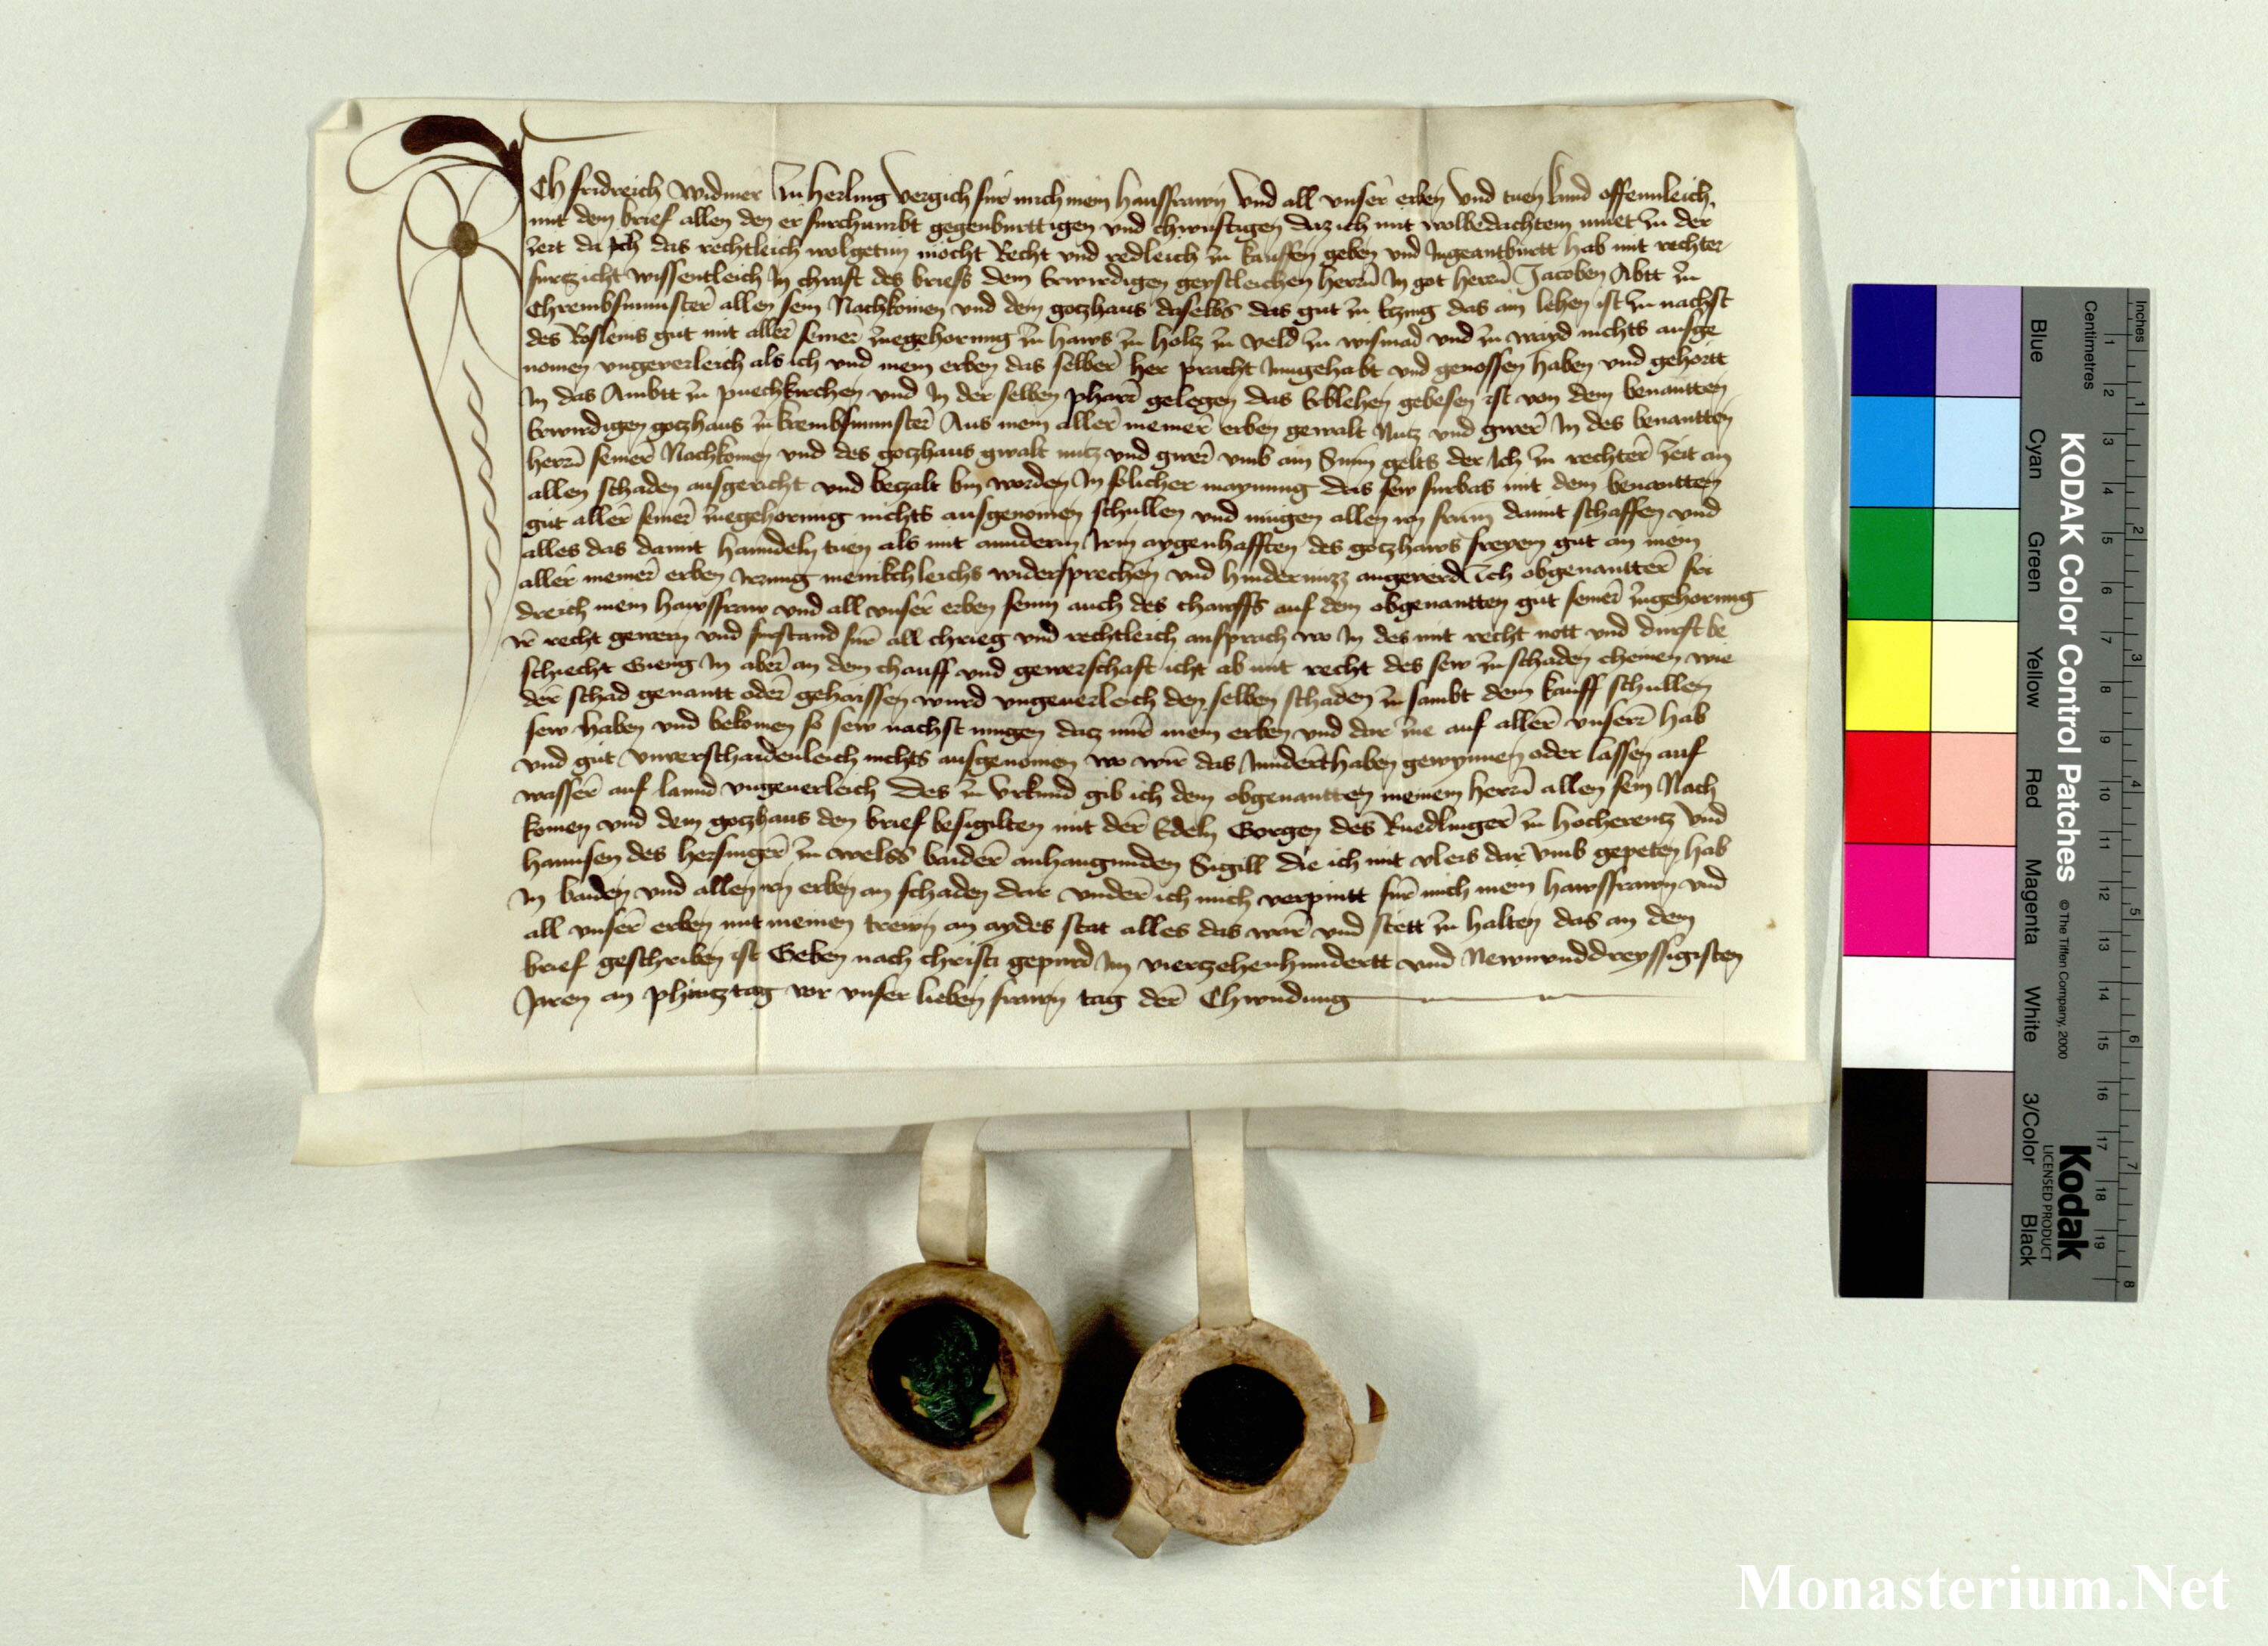 Ich fridreich Widmer zu herling vergich für mich mein hausfrawn Vnd all vnser erben Vnd tuen kund offennleich
mit dem brief allen den er furchumbt gegenburttigen vnd chunftigen daz ich mit wolbedachtem muet zu der
zeit da ich das rechtleich wolgetun mocht Recht vnd redleich zu kauffen geben vnd Ingeantburtt hab mit rechter
furtzicht wissentleich In chraft des briefs dem Erwirdigen geystleichen herrn In got herrn Jacoben Abtt zu
Chrembsmunster allen sein Nachkomen vnd dem gotzhaus daselbs das gut zu Etzing das ain lehen ist zu nachst
des Roslems gut mit aller seiner zuegehorung zu haws zu holtz zu veld zu wismad vnd zu wayd nichts ausge
nomen vngeuerleich als ich vnd mein erben das selber her pracht Inngehabt vnd genossen haben vnd gehortt
In das Ambtt zu puechkirchen vnd In der selben pharr gelegen das Erblehen gebesen ist von dem benantten
Erwirdigen gotzhaus zu krembsmunster Aus mein aller meiner erben gewalt Nutz vnd gwer In des benantten
herrn seiner Nachkomen vnd des gotzhaus gwalt nutz vnd gwer vmb ain Sum gelts der Ich zu rechter zeit an
allen schaden ausgericht vnd betzalt bin worden In solicher maynung das sew furbas mit dem benantten
gut aller seiner zuegehorung nichts ausgenomen schullen vnd mugen allen irn frum damit schaffen vnd
alles das damit hanndeln tuen als mit anndern Irm aygenhafften des gotzhaws freyem gut an mein
aller meiner erben Irrung menikchleichs widersprechen vnd hindernuzz angeuerd Ich obgenantter fri
dreich mein hawsfraw vnd all vnser erben seinn auch des chawffs auf dem obgenantten gut seiner zugehorung
ir recht gewern vnd furstand für all chrieg vnd rechtleich ansprach wo In des mit recht nott vnd durft be
schiecht Gieng In aber an dem chauff vnd gewerschaft icht ab mit recht des sew zu schaden chemen wie
der schad genantt oder gehaissen wurd vngeuerleich den selben schaden zu sambt dem kauff schullen
sew haben vnd bekomen so sew nachst mugen datz mir mein erben vnd dar zue auf aller vnserr hab
vnd gut vnuerschaidenleich nichts ausgenomen wo wir das Inndert haben gewynnen oder lassen auf
wasser auf lannd vngeuerleich Des zu Vrkund gib ich dem obgenantten meinem herrn allen sein Nach
komen vnd dem gotzhaus den brief besigilten mit der Edeln Gorgen des Ruedlinger zu hocherentz Vnd
hannsen des hersinger zu welss baider anhangunden Sigill die ich mit vleis dar Vmb gepeten hab
In baiden vnd allen irn erben an schaden dar vnder ich mich verpintt für mich mein hawsfrawn vnd
all vnser erben mit meinen trewn an aydes stat alles das war vnd stett zu halten das an dem
brief geschriben ist Geben nach christi gepurd Im vierzehenhundertt vnd Newnvnddreyssigisten
Jaren an phintztag vor vnser lieben frawn tag der Chundung
Inches
Centimetres
1 2 3 4 5 6 7 8
1 2 3 4 5 6 7 8 9 10 11 12 13 14 15 16 17 18 19
KODAK Color Control Patches
© The Tiffen Company, 2000
Kodak
LICENSED PRODUCT
Blue Cyan Green Yellow Red Magenta White 3/Color Black
Monasterium.Net